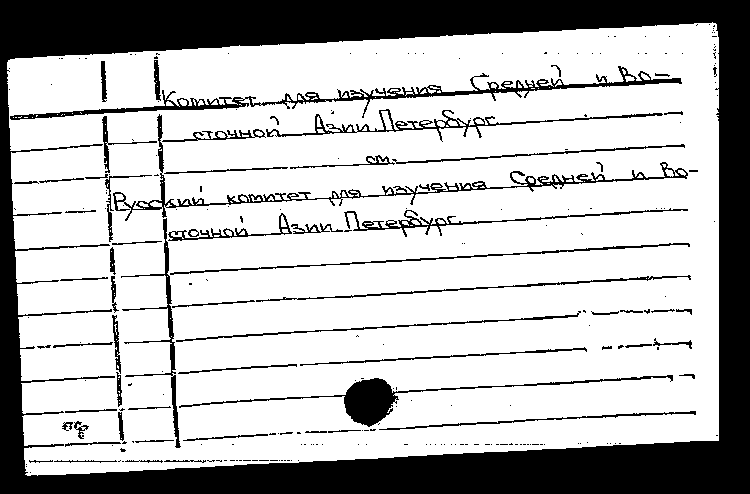 Комитет для изучения Средней и Во-
сточной Азии. Петербург.
см.
Русский комитет для изучения Средней и Во-
сточной Азии. Петербург.